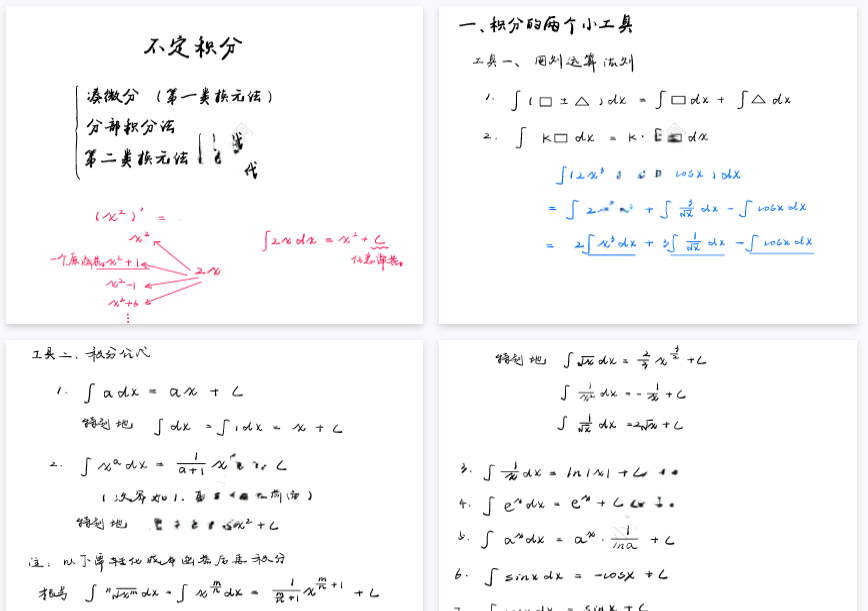 不定积分
凑微分 (第一类换元法)
分部积分法
第二类换元法
代
(x²)' =
x²
一个原函数 x²+1
2x
x²-1
x²+6
⋮
∫2xdx = x²+C
任意常数
一、积分的两个小工具
工具一、四则运算法则
1. ∫(□ ± △)dx = ∫□dx + ∫△dx
2. ∫ K□ dx = K· □ dx
∫(2x³ cosx)dx
= ∫ 2x + ∫ 3/√x dx - ∫ cosx dx
= 2∫x³dx + 3∫ 1/√x dx - ∫cosx dx
工具二、积分公式
1. ∫adx = ax + C
特别地 ∫dx = ∫1dx = x + C
2. ∫xᵃdx = 1/(a+1) x C
特别地 x² + C
注: 以下需转化成幂函数后再积分
∫ ⁿ√xᵐ dx = ∫ x^(m/n) dx = 1/(m/n+1) x^(m/n+1) + C
特别地 ∫√x dx = 2/3 x^(3/2) + C
∫ 1/x² dx = - 1/x + C
∫ 1/√x dx = 2√x + C
3. ∫ 1/x dx = ln|x| + C
4. ∫ eˣdx = eˣ + C
5. ∫ aˣdx = aˣ · 1/lna + C
6. ∫ sinx dx = -cosx + C
7. ∫ cosx dx = sinx + C